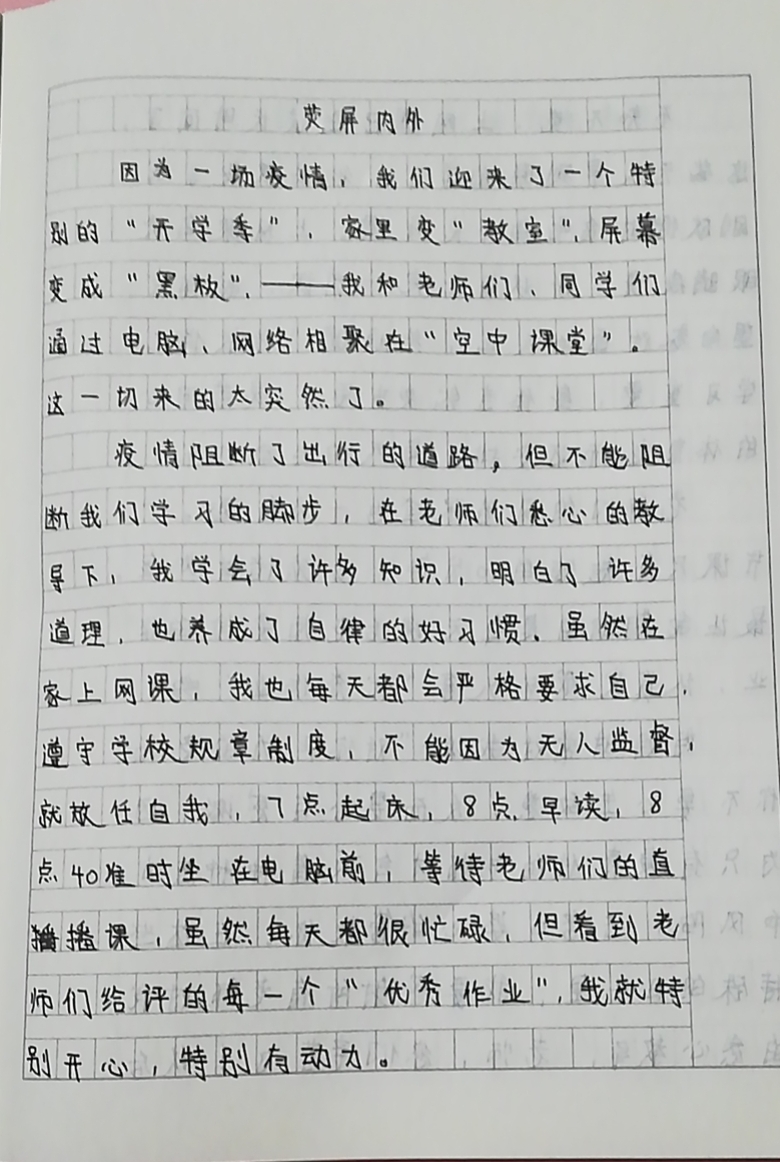 荧屏内外
因为一场疫情，我们迎来了一个特
别的“开学季”，家里变“教室”，屏幕
变成“黑板”，——我和老师们、同学们
通过电脑、网络相聚在“空中课堂”。
这一切来的太突然了。
疫情阻断了出行的道路，但不能阻
断我们学习的脚步，在老师们悉心的教
导下，我学会了许多知识，明白了许多
道理，也养成了自律的好习惯。虽然在
家上网课，我也每天都会严格要求自己，
遵守学校规章制度，不能因为无人监督，
就放任自我，7点起床，8点早读，8
点40准时坐在电脑前，等待老师们的直
播课，虽然每天都很忙碌，但看到老
师们给评的每一个“优秀作业”，我就特
别开心，特别有动力。